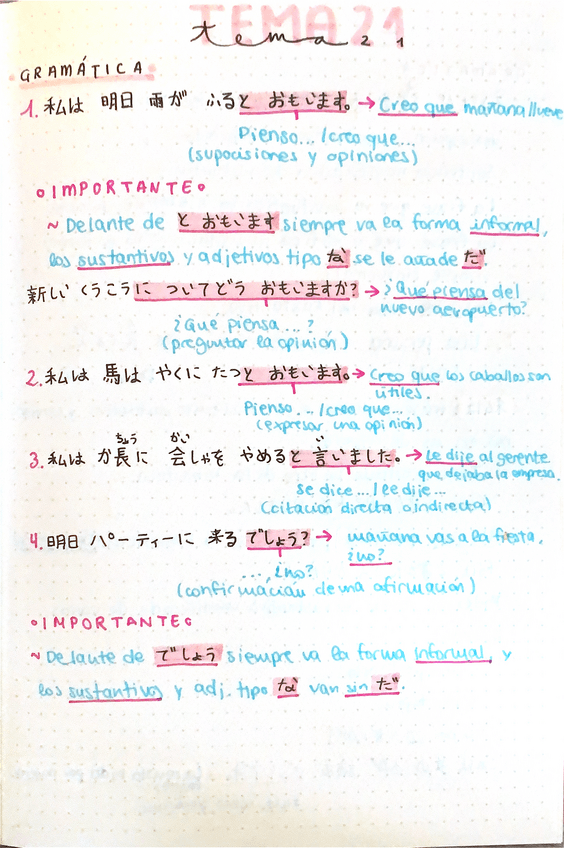 TEMA 21
tema 21
GRAMÁTICA
1. 私は 明日 雨が ふると おもいます。→ Creo que mañana llueve
Pienso... /creo que...
(suposiciones y opiniones)
IMPORTANTE
~ Delante de と おもいます siempre va la forma informal,
los sustantivos y adjetivos tipo な se le añade だ.
新しい くうこうに ついてどう おもいますか? → ¿Qué piensa del
nuevo aeropuerto?
¿Qué piensa...?
(preguntar la opinión)
2. 私は 馬は やくに たつと おもいます。→ Creo que los caballos son
útiles.
Pienso... /creo que...
(expresar una opinión)
ちょう かい い
3. 私は か長に 会しゃを やめると 言いました。→ Le dije al gerente
que dejaba la empresa.
se dice... /le dije...
(citación directa o indirecta)
4. 明日 パーティーに 来る でしょう? → mañana vas a la fiesta,
¿no?
..., ¿no?
(confirmación de una afirmación)
IMPORTANTE
~ Delante de でしょう siempre va la forma informal, y
los sustantivos y adj. tipo な van sin だ.